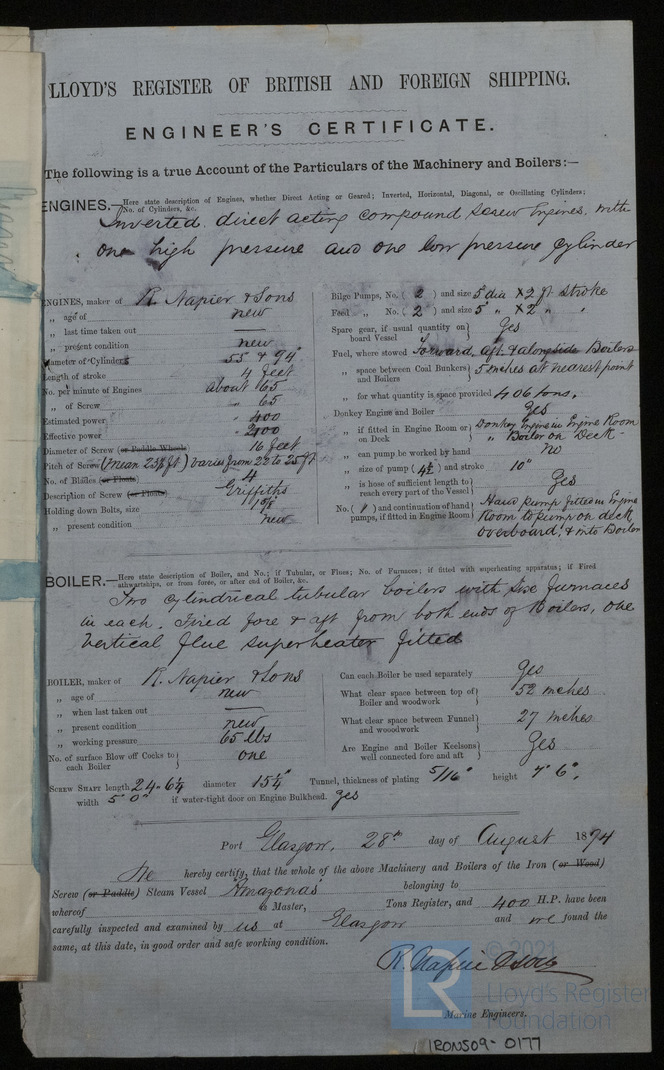 LLOYD'S REGISTER OF BRITISH AND FOREIGN SHIPPING.
ENGINEER'S CERTIFICATE.
The following is a true Account of the Particulars of the Machinery and Boilers:—
ENGINES.— Here state description of Engines, whether Direct Acting or Geared; Inverted, Horizontal, Diagonal, or Oscillating Cylinders;
No. of Cylinders, &c.
Inverted direct acting compound Screw Engines, with
one high pressure and one low pressure Cylinder
ENGINES, maker of R. Napier & Sons
„ age of new
„ last time taken out —
„ present condition new
Diameter of Cylinders 55 & 94"
Length of stroke 4 feet
No. per minute of Engines about 65
„ of Screw „ 65
Estimated power 400
Effective power 2400
Diameter of Screw (or Paddle Wheels) 16 feet
Pitch of Screw (mean 23½ ft) varies from 22 to 25 ft
No. of Blades (or Floats) 4
Description of Screw (or Floats) Griffiths
Holding down Bolts, size
„ present condition new
Bilge Pumps, No. ( 2 ) and size 5" dia × 2 ft stroke
Feed „ No. ( 2 ) and size 5 " × 2 " "
Spare gear, if usual quantity on board Vessel } Yes
Fuel, where stowed Forward, aft, & alongside Boilers
„ space between Coal Bunkers and Boilers } 5 inches at nearest point
„ for what quantity is space provided 406 tons.
Donkey Engine and Boiler Yes
„ if fitted in Engine Room or on Deck } Donkey Engine in Engine Room
„ Boiler on Deck
„ can pump be worked by hand no
„ size of pump (4½) and stroke 10"
„ is hose of sufficient length to reach every part of the Vessel } Yes
No. ( 1 ) and continuation of hand pumps, if fitted in Engine Room } Hand pump fitted in Engine
Room to pump on deck
overboard, & into Boiler
BOILER.— Here state description of Boiler, and No.; if Tubular, or Flues; No. of Furnaces; if fitted with superheating apparatus; if Fired
athwartships, or from fore, or after end of Boiler, &c.
Two cylindrical tubular boilers with six furnaces
in each. Fired fore & aft from both ends of Boilers, one
Vertical flue superheater fitted
BOILER, maker of R. Napier & Sons
„ age of new
„ when last taken out —
„ present condition new
„ working pressure 65 lbs
No. of surface Blow off Cocks to each Boiler } one
Can each Boiler be used separately Yes
What clear space between top of Boiler and woodwork } 52 inches
What clear space between Funnel and wooodwork } 27 inches
Are Engine and Boiler Keelsons well connected fore and aft } Yes
SCREW SHAFT length 24-6¼ diameter 15¼" Tunnel, thickness of plating 5/16" height 7' 6".
width 5' 0" if water-tight door on Engine Bulkhead. Yes
Port Glasgow, 28th day of August 1874
We hereby certify, that the whole of the above Machinery and Boilers of the Iron (or Wood)
Screw (or Paddle) Steam Vessel Amazonas belonging to
whereof is Master, Tons Register, and 400 H.P. have been
carefully inspected and examined by us at Glasgow and we found the
same, at this date, in good order and safe working condition.
R. Napier & Sons
Marine Engineers.
LR © 2021
Lloyd's Register
Foundation
IRON509-0177